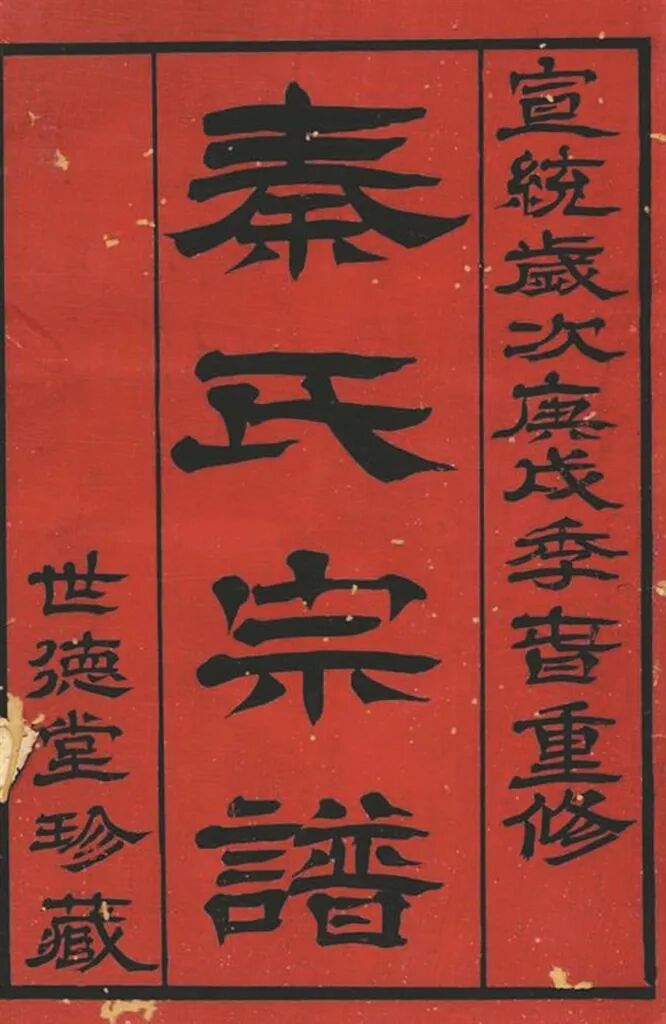 宣統歲次庚戌季旾重修
秦氏宗譜
世德堂珍藏